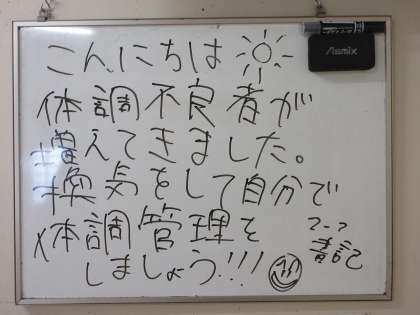 こんにちは
Asmix
体調不良者が
増えてきました。
換気をして自分で
体調管理を
しましょう!!!
2-2
書記